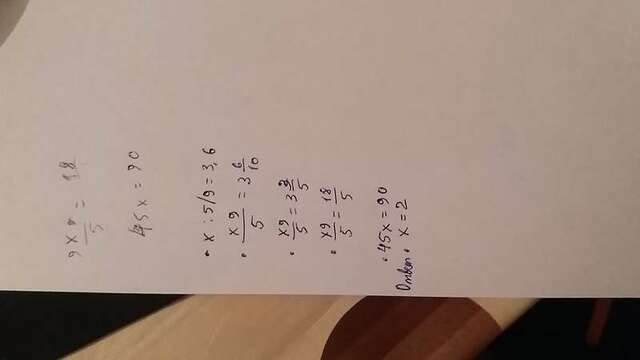 9x = 18
5
45x = 90
• x : 5/9 = 3,6
• x9/5 = 3 6/10
• x9/5 = 3 3/5
• x9/5 = 18/5
• 45x = 90
Ответ • x = 2